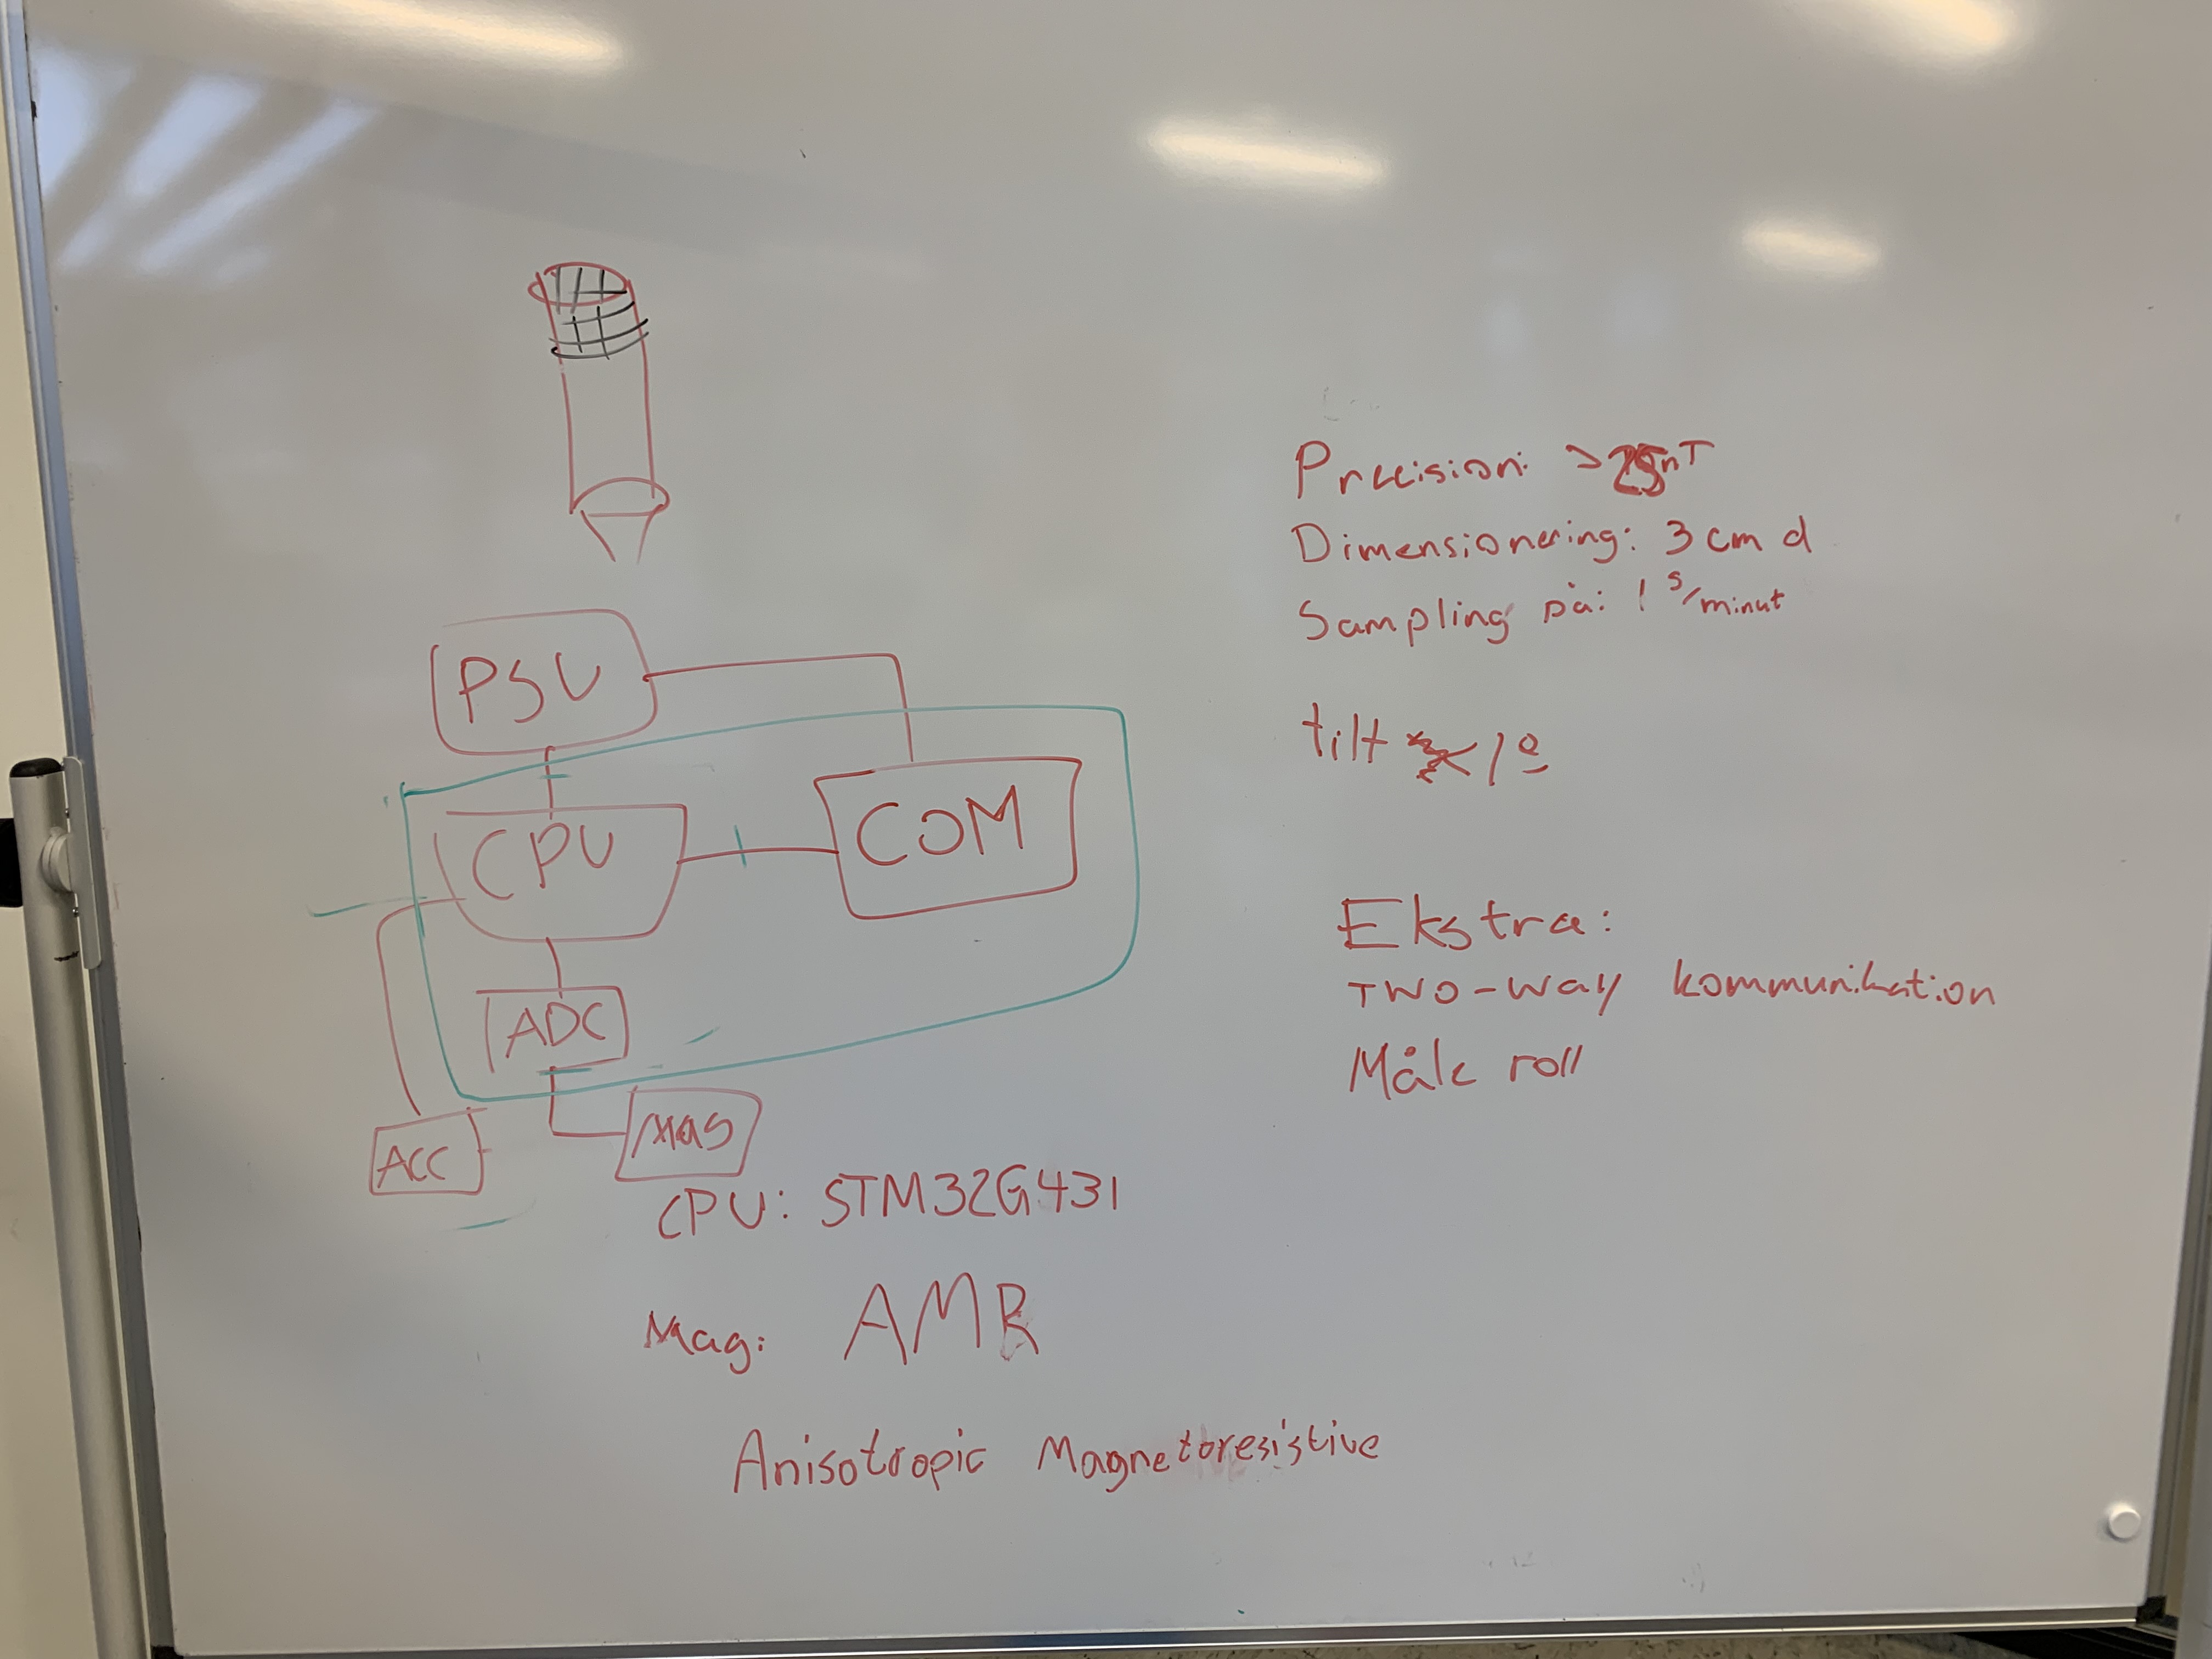 PSU
CPU
COM
ADC
ACC
MAG
CPU: STM32G431
Mag: AMR
Anisotropic Magnetoresistive
Precision: > 25nT
Dimensionering: 3 cm d
Sampling på: 1 s/minut
tilt 1º
Ekstra:
TWO-way kommunikation
Måle roll